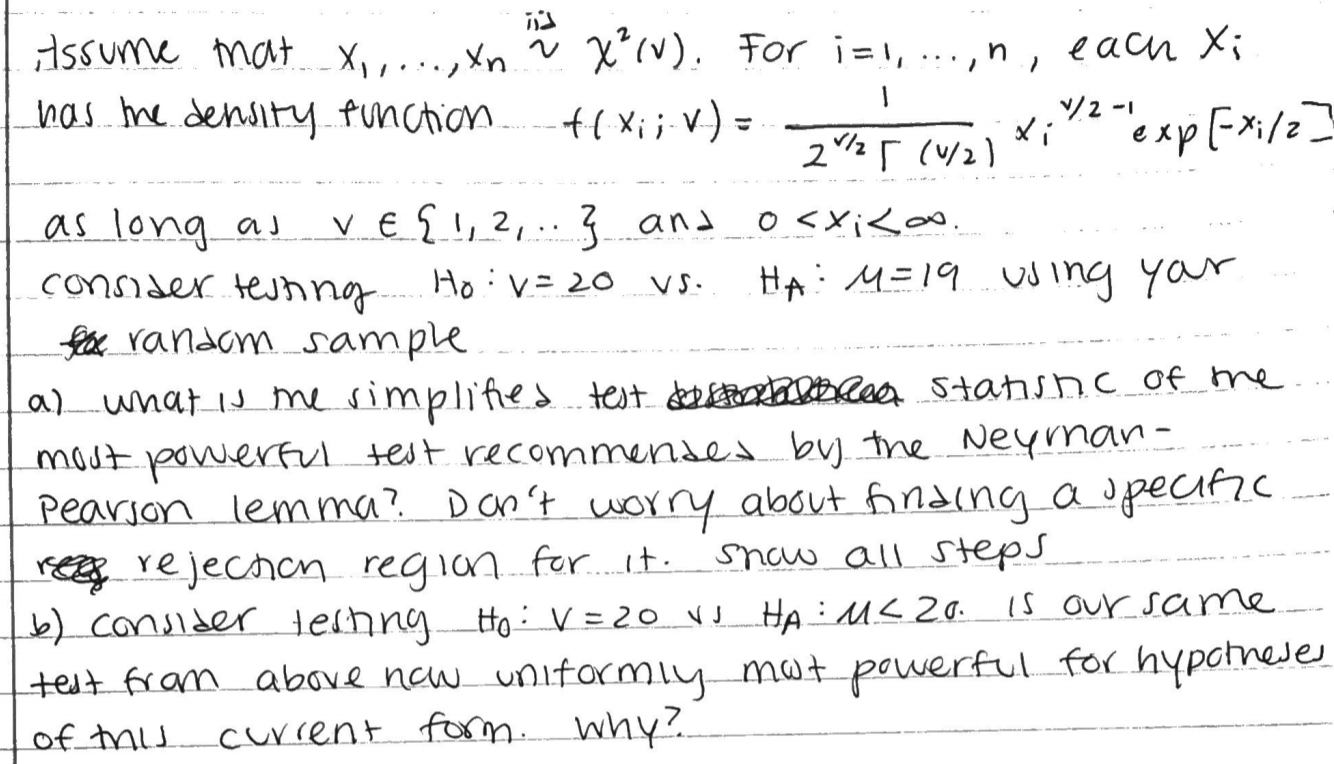 Assume that X₁,...,Xₙ iid ~ χ²(v). For i=1, ...,n, each Xᵢ
has the density function f(xᵢ; v) = 1 / (2^(v/2) Γ(v/2)) xᵢ^(v/2 -1) exp[-xᵢ/2]
as long as v ∈ {1, 2, ..} and 0 < xᵢ < ∞.
consider testing H₀: v = 20 vs. H_A: M = 19 using your
random sample
a) what is the simplified test statistic of the
most powerful test recommended by the Neyman-
Pearson lemma? Don't worry about finding a specific
rejection region for it. show all steps
b) consider testing H₀: v = 20 vs H_A: M < 20. is our same
test from above now uniformly most powerful for hypotheses
of this current form. Why?